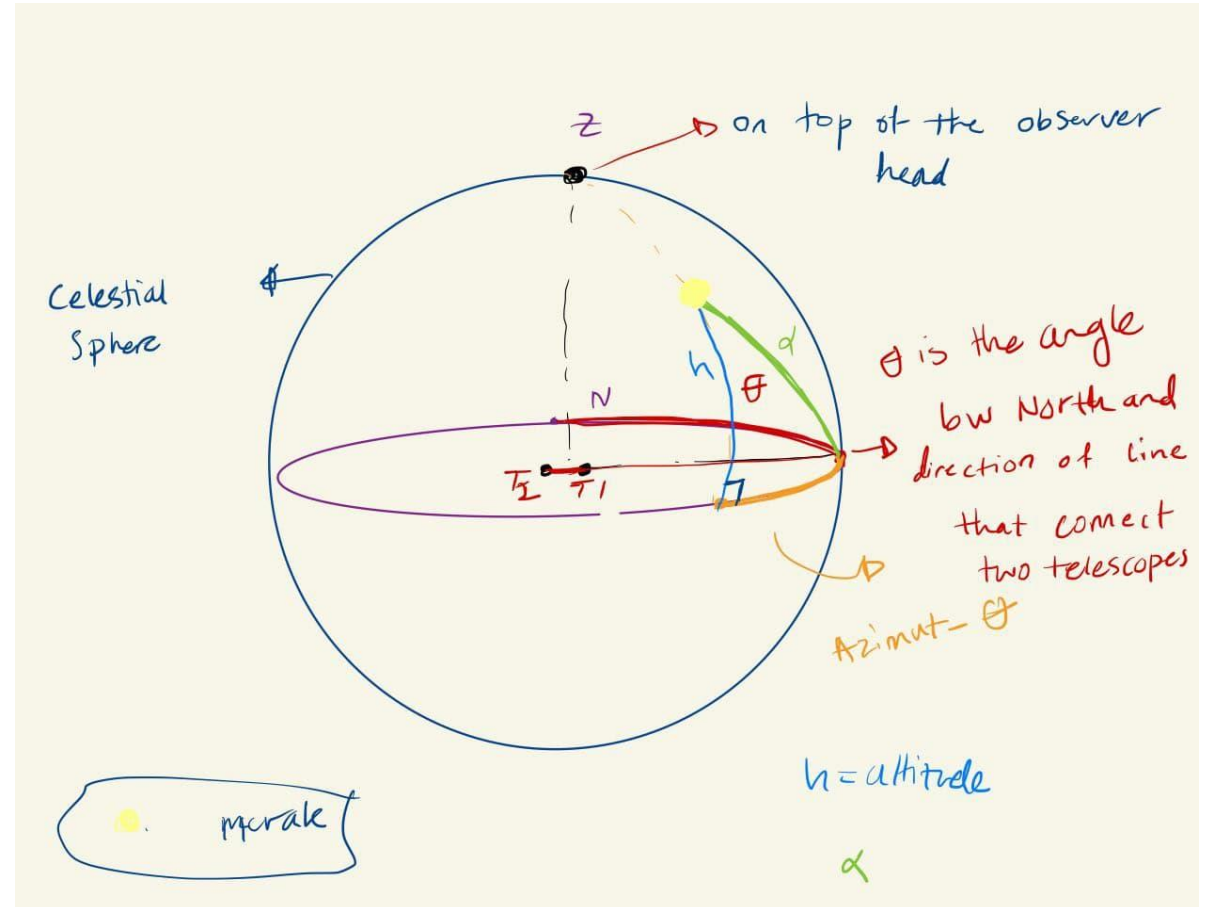 Z
on top of the observer
head
Celestial
Sphere
N
h
θ
α
T2 T1
θ is the angle
bw North and
direction of line
that connect
two telescopes
Azimut - θ
h = altitude
α